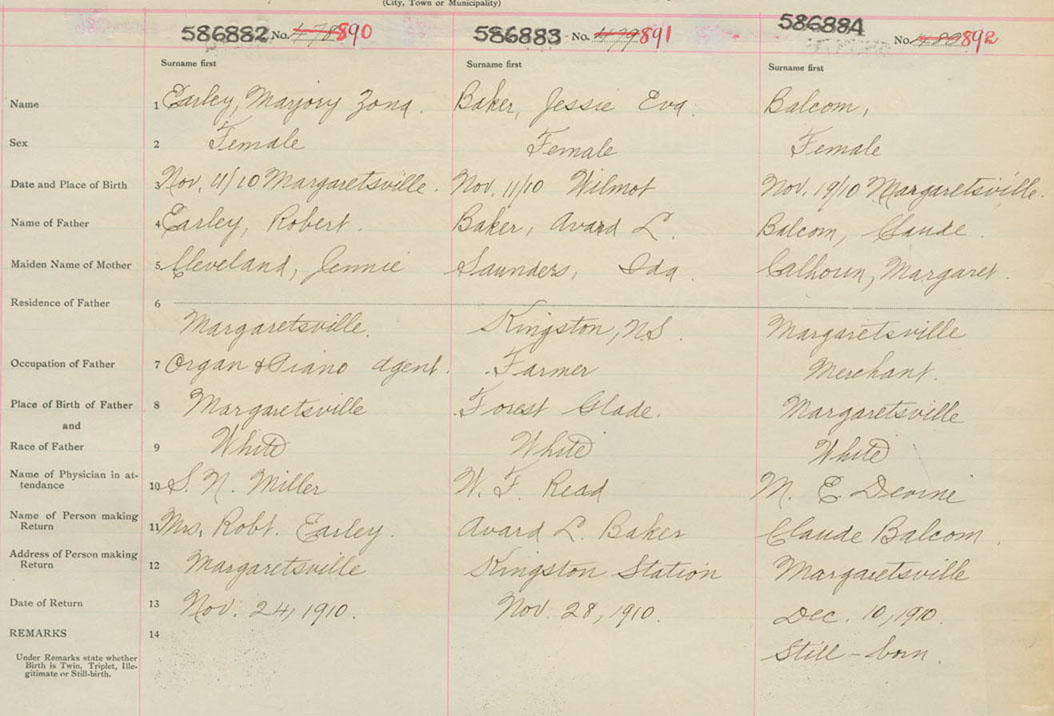 (City, Town or Municipality)
586882 No. 478 890 586883 No. 479 891 586884 No. 480 892
Surname first Surname first Surname first
Name 1 Earley, Marjory Zona. Baker, Jessie Eva. Balcom,
Sex 2 Female Female Female
Date and Place of Birth 3 Nov. 11/10 Margaretsville. Nov. 11/10 Wilmot Nov. 19/10 Margaretsville.
Name of Father 4 Earley, Robert. Baker, Avard L. Balcom, Claude.
Maiden Name of Mother 5 Cleveland, Jennie Saunders, Ida. Calhoun, Margaret.
Residence of Father 6
Margaretsville. Kingston, N.S. Margaretsville
Occupation of Father 7 Organ & Piano agent. Farmer Merchant.
Place of Birth of Father 8 Margaretsville Forest Glade. Margaretsville
and
Race of Father 9 White White White
Name of Physician in at-
tendance 10 S. N. Miller W. F. Read M. E. Devine
Name of Person making
Return 11 Mrs. Robt. Earley. Avard L. Baker Claude Balcom.
Address of Person making
Return 12 Margaretsville Kingston Station Margaretsville
Date of Return 13 Nov. 24, 1910. Nov. 28, 1910. Dec. 10, 1910.
REMARKS 14
Still-born.
Under Remarks state whether
Birth is Twin, Triplet, Ille-
gitimate or Still-birth.